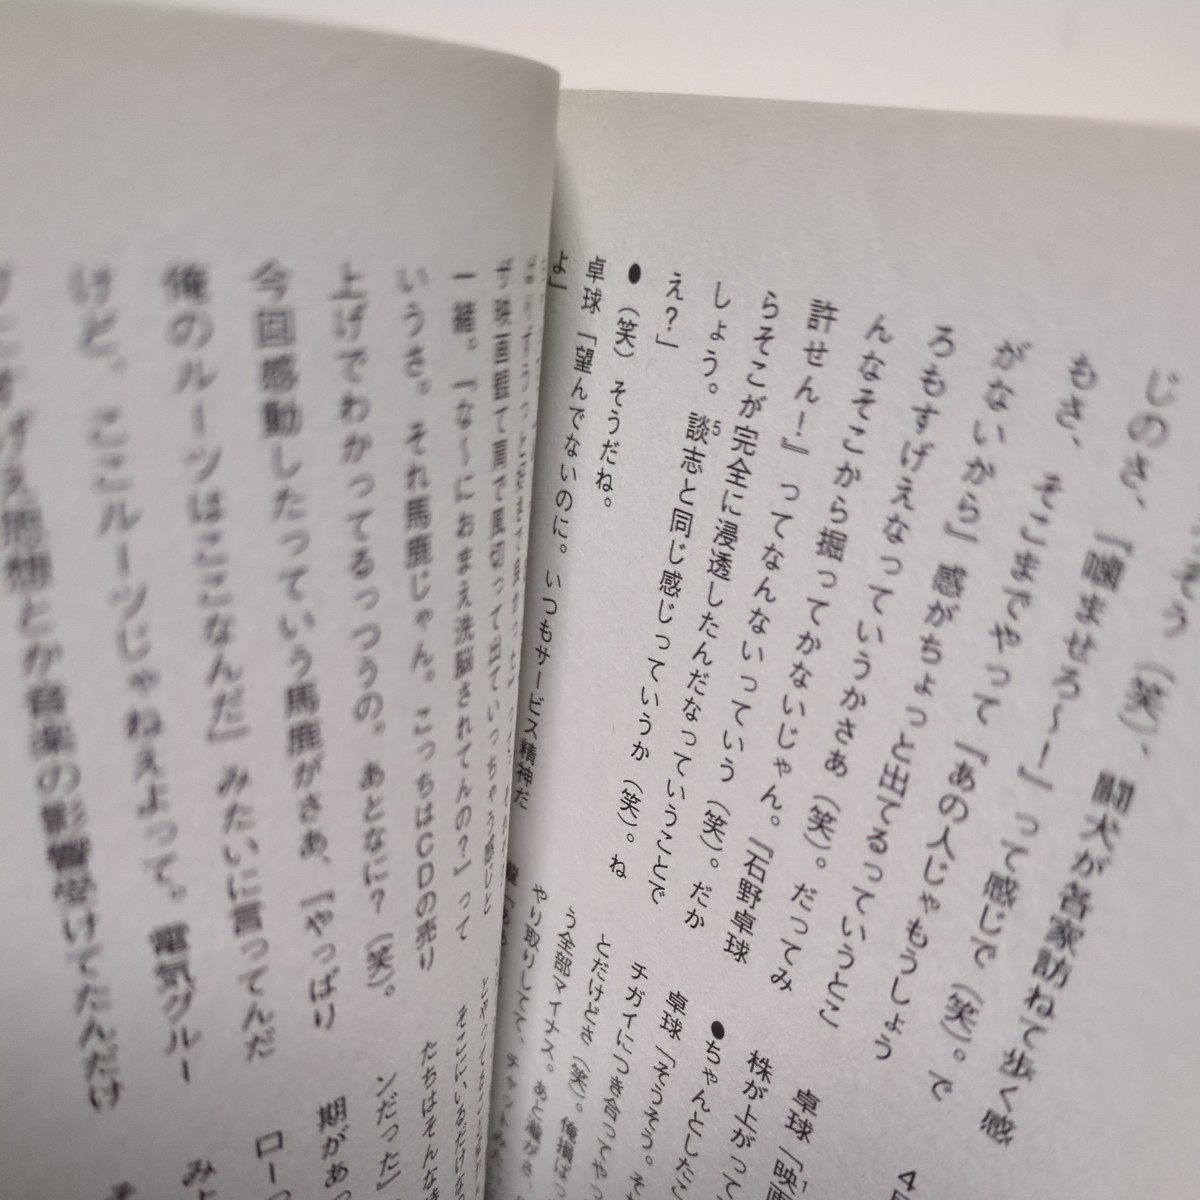 そう（笑）、闘犬が各家訪ねて歩く感
じのさ、『噛ませろ〜！』って感じで（笑）。で
もさ、そこまでやって『あの人じゃもうしょう
がないから』感がちょっと出てるっていうとこ
ろもすげえなっていうかさあ（笑）。だってみ
んなそこから掘ってかないじゃん。『石野卓球
許せん！』ってなんないっていう（笑）。だか
らそこが完全に浸透したんだなっていうことで
しょう。談志と同じ感じっていうか（笑）。ね
5
え？」
●（笑）そうだね。
卓球「望んでないのに。いつもサービス精神だ
よ」
卓球「映画
1
株が上がって
●ちゃんとしたこ
卓球「そうそう。そ
チガイにつき合ってや
とだけどさ（笑）。俺損はっ
う全部マイナス。あと瀧がさ、
やり取りしてて、チャットみた
て肩で風切って出ていっちゃう感じと
一緒。『な〜におまえ洗脳されてんの？』って
いうさ。それ馬鹿じゃん。こっちはCDの売り
上げでわかってるっつうの。あとなに？（笑）。
今回感動したっていう馬鹿がさあ、『やっぱり
俺のルーツはここなんだ』みたいに言ってんだ
けど、ここルーツじゃねえよって。電気グルー
思想とか音楽の影響受けてたんだけ
たちはそんな
ンだった」
期があっ
ロー
み